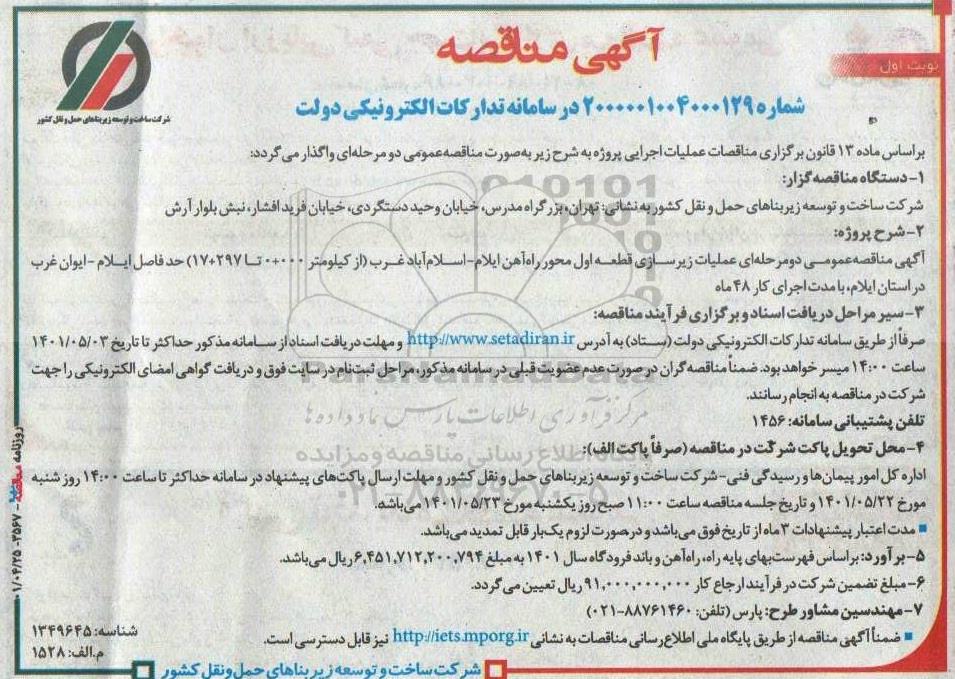 آگهی مناقصه
نوبت اول
شرکت ساخت و توسعه زیربناهای حمل و نقل کشور
شماره ۲۰۰۰۰۰۱۰۰۴۰۰۰۱۲۹ در سامانه تدارکات الکترونیکی دولت
براساس ماده ۱۳ قانون برگزاری مناقصات عملیات اجرایی پروژه به شرح زیر به‌صورت مناقصه‌عمومی دو مرحله‌ای واگذار می‌گردد:
۱-دستگاه مناقصه‌گزار:
شرکت ساخت و توسعه زیربناهای حمل و نقل کشور به نشانی: تهران، بزرگراه مدرس، خیابان وحید دستگردی، خیابان فرید افشار، نبش بلوار آرش
۲-شرح پروژه:
آگهی مناقصه‌عمومی دومرحله‌ای عملیات زیرسازی قطعه اول محور راه‌آهن ایلام-اسلام‌آباد غرب (از کیلومتر ۰۰۰+۰ تا ۲۹۷+۱۷) حد فاصل ایلام-ایوان غرب
در استان ایلام، با مدت اجرای کار ۴۸ ماه
۳-سیر مراحل دریافت اسناد و برگزاری فرآیند مناقصه:
صرفاً از طریق سامانه تدارکات الکترونیکی دولت (ستاد) به آدرس http://www.setadiran.ir و مهلت دریافت اسناد از سامانه مذکور حداکثر تا تاریخ ۱۴۰۱/۰۵/۰۳
ساعت ۱۴:۰۰ میسر خواهد بود. ضمناً مناقصه‌گران در صورت عدم عضویت قبلی در سامانه مذکور، مراحل ثبت‌نام در سایت فوق و دریافت گواهی امضای الکترونیکی را جهت
شرکت در مناقصه به انجام رسانند.
تلفن پشتیبانی سامانه: ۱۴۵۶
۴-محل تحویل پاکت شرکت در مناقصه (صرفاً پاکت الف):
اداره کل امور پیمان‌ها و رسیدگی فنی-شرکت ساخت و توسعه زیربناهای حمل و نقل کشور و مهلت ارسال پاکت‌های پیشنهاد در سامانه حداکثر تا ساعت ۱۴:۰۰ روز شنبه
مورخ ۱۴۰۱/۰۵/۲۲ و تاریخ جلسه مناقصه ساعت ۱۱:۰۰ صبح روز یکشنبه مورخ ۱۴۰۱/۰۵/۲۳ می‌باشد.
■ مدت اعتبار پیشنهادات ۳ ماه از تاریخ فوق می‌باشد و در صورت لزوم یک‌بار قابل تمدید می‌باشد.
۵-برآورد: براساس فهرست‌بهای پایه راه، راه‌آهن و باند فرودگاه سال ۱۴۰۱ به مبلغ ۶,۴۵۱,۷۱۲,۲۰۰,۷۹۴ ریال می‌باشد.
۶-مبلغ تضمین شرکت در فرآیند ارجاع کار ۹۱,۰۰۰,۰۰۰,۰۰۰ ریال تعیین می‌گردد.
۷-مهندسین مشاور طرح: پارس (تلفن: ۸۸۷۶۱۴۶۰-۰۲۱)
■ ضمناً آگهی مناقصه از طریق پایگاه ملی اطلاع‌رسانی مناقصات به نشانی http://iets.mporg.ir نیز قابل دسترسی است.
شناسه: ۱۳۴۹۶۴۵
م.الف: ۱۵۲۸
شرکت ساخت و توسعه زیربناهای حمل و نقل کشور
روزنامه مناقصه - ۳۵۶۷ - ۰۱/۰۴/۲۵
ParsNamadData
مرکز فرآوری اطلاعات پارس نماد داده‌ها
اطلاع رسانی مناقصه و مزایده